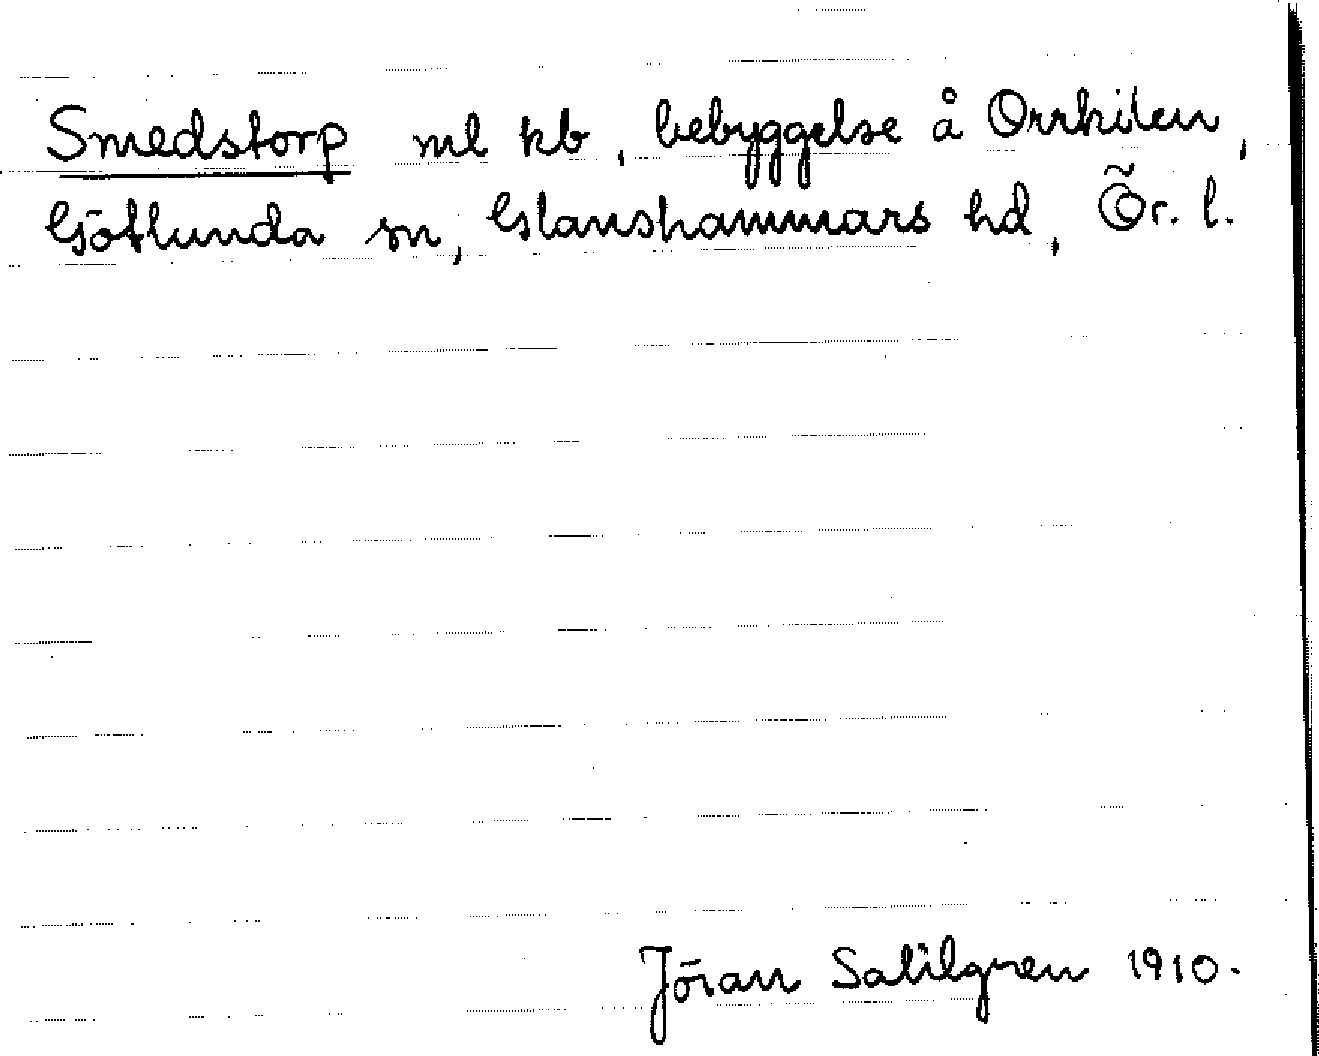 Smedstorp ml kb, bebyggelse å Orrkilen,
Götlunda sn, Glanshammars hd, Ör. l.
Jöran Sahlgren 1910.